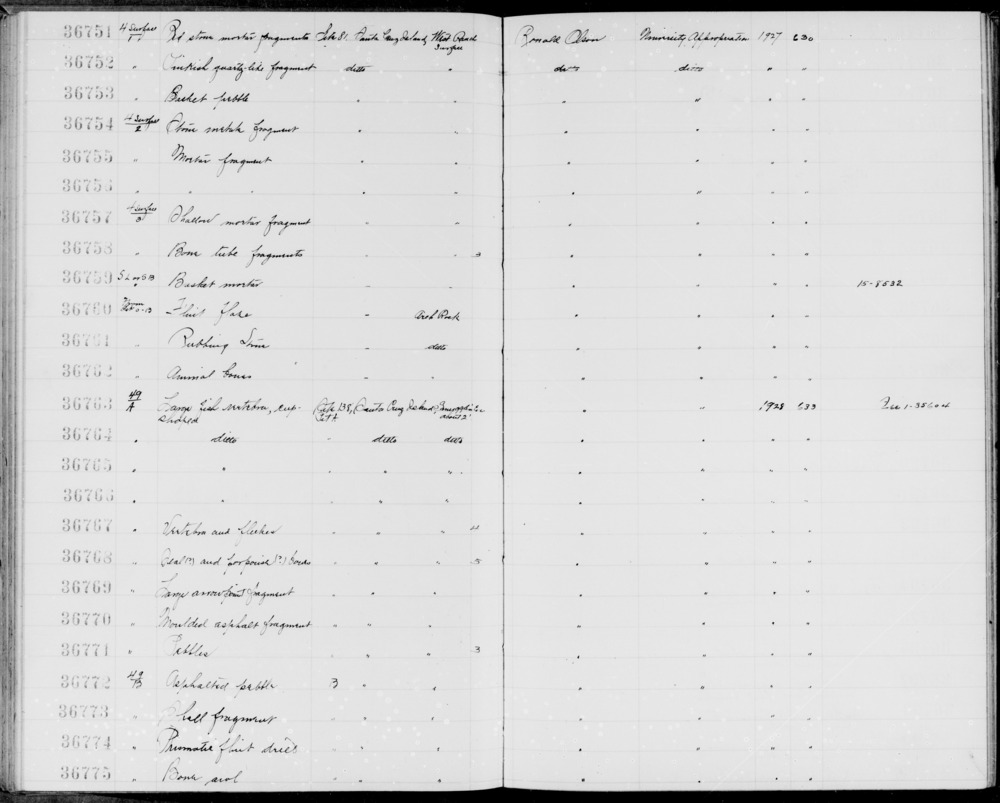 36751 4 Surface 1 Red stone mortar fragments Site 81, Santa Cruz Island, West Beach Surface Ronald Olson University Appropriation 1927 630
36752 " quartz-like fragment ditto " ditto ditto " "
36753 " Basket pebble " " " " " "
36754 4 Surface 2 Stone metate fragment " " " " " "
36755 " Mortar fragment " " " " " "
36756 " " " " " " " " "
36757 4 Surface 3 Shallow mortar fragment " " " " " "
36758 " Bone tube fragments " " 3 " " " "
36759 Basket mortar " " " " " " 15-8532
36760 Flint flake " Arch Rock " " " "
36761 " Rubbing Stone " ditto " " " "
36762 " Animal bones " " " " " "
36763 49 A Large fish vertebra, cup-shaped Site 138, Santa Cruz Island, " " 1928 633 1-35604
36764 " ditto " ditto ditto " " " "
36765 " " " " " " " " "
36766 " " " " " " " "
36767 " Vertebra and flukes " " " 4 " " " "
36768 " Seal(?) and porpoise(?) bones " " " 5 " " " "
36769 " Large arrow point fragment " " " " " " "
36770 " Moulded asphalt fragment " " " " " " "
36771 " Pebbles " " " 3 " " " "
36772 49 B Asphalted pebble B " " " " " "
36773 " Shell fragment " " " " " " "
36774 " Prismatic flint drill " " " " " " "
36775 " Bone awl " " " " " " "